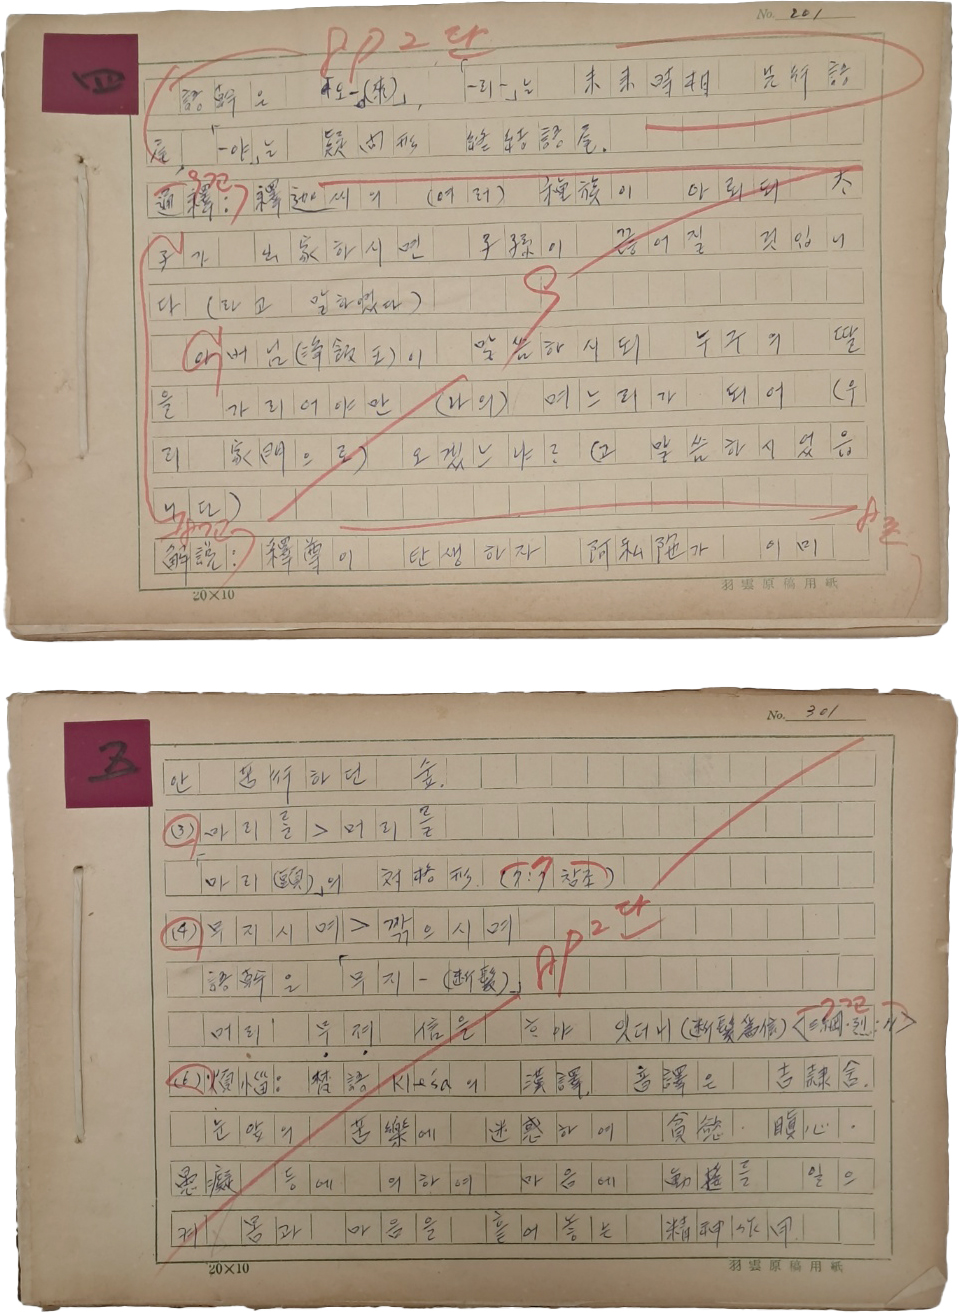 No. 201
8P 2단
語幹은 「오-(來)」, 「-리-」는 未來時相 先行語
尾, 「-야」는 疑問形 終結語尾.
通釋: 釋迦씨의 (여러) 種族이 아뢰되 太
子가 出家하시면 子孫이 끊어질 것입니
다 (라고 말하였다)
아버님(淨飯王)이 말씀하시되 누구의 딸
을 가리어야만 (나의) 며느리가 되어 (우
리 家門으로) 오겠느냐 (고 말씀하시었읍
니다)
解説: 釋尊이 탄생하자 阿私陀가 이미
20×10
羽雲原稿用紙
No. 301
五
안 苦行하던 숲.
(3) 마리를 > 머리를
「마리(頭)」의 對格形. (참조)
(4) 무지시며 > 깎으시며
8P 2단
語幹은 「무지-(斷髮)」
머리 무져 信을 ᄒᆞ야 잇더니 (斷髮爲信) <三綱·烈:>
煩惱: 梵語 Kleśa의 漢譯. 音譯은 吉隷舍.
눈앞의 苦樂에 迷惑하여 貪慾· 瞋心·
愚癡 등에 의하여 마음에 動搖를 일으
켜 몸과 마음을 흩어놓는 精神作用
20×10
羽雲原稿用紙